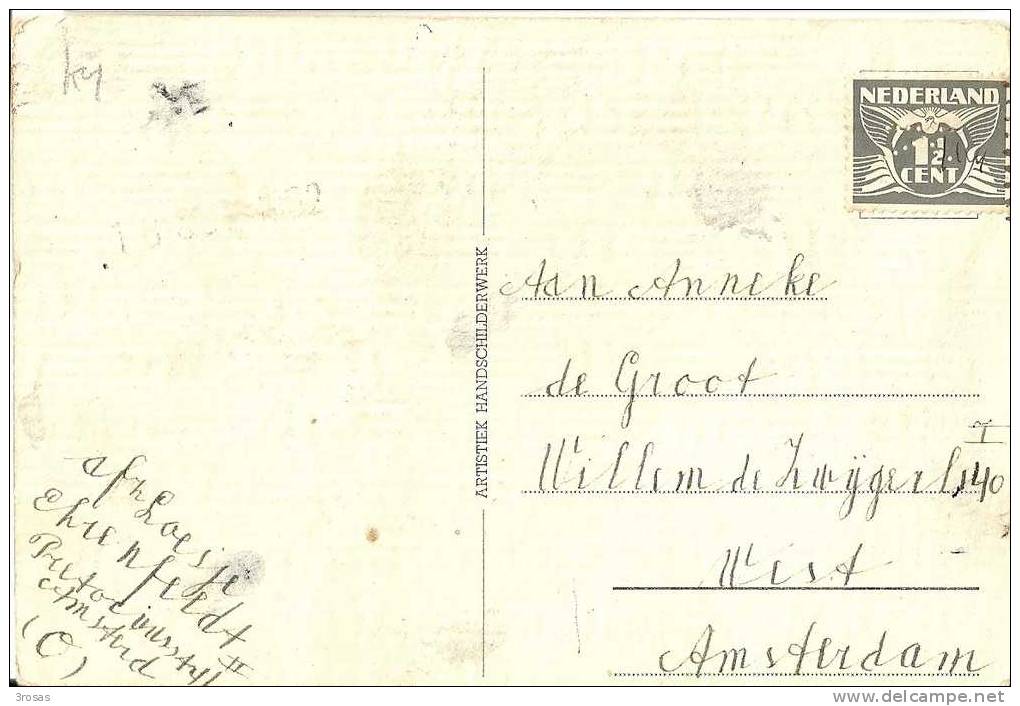 ky
NEDERLAND
1½
CENT
ARTISTIEK HANDSCHILDERWERK
Aan Anneke
de Groot
I
Willem de Zwijgerl. 140
West
Amsterdam
afz Loesje
Ehrenfeldt
II
Amsterd
(O)
3rosas
delcampe.net